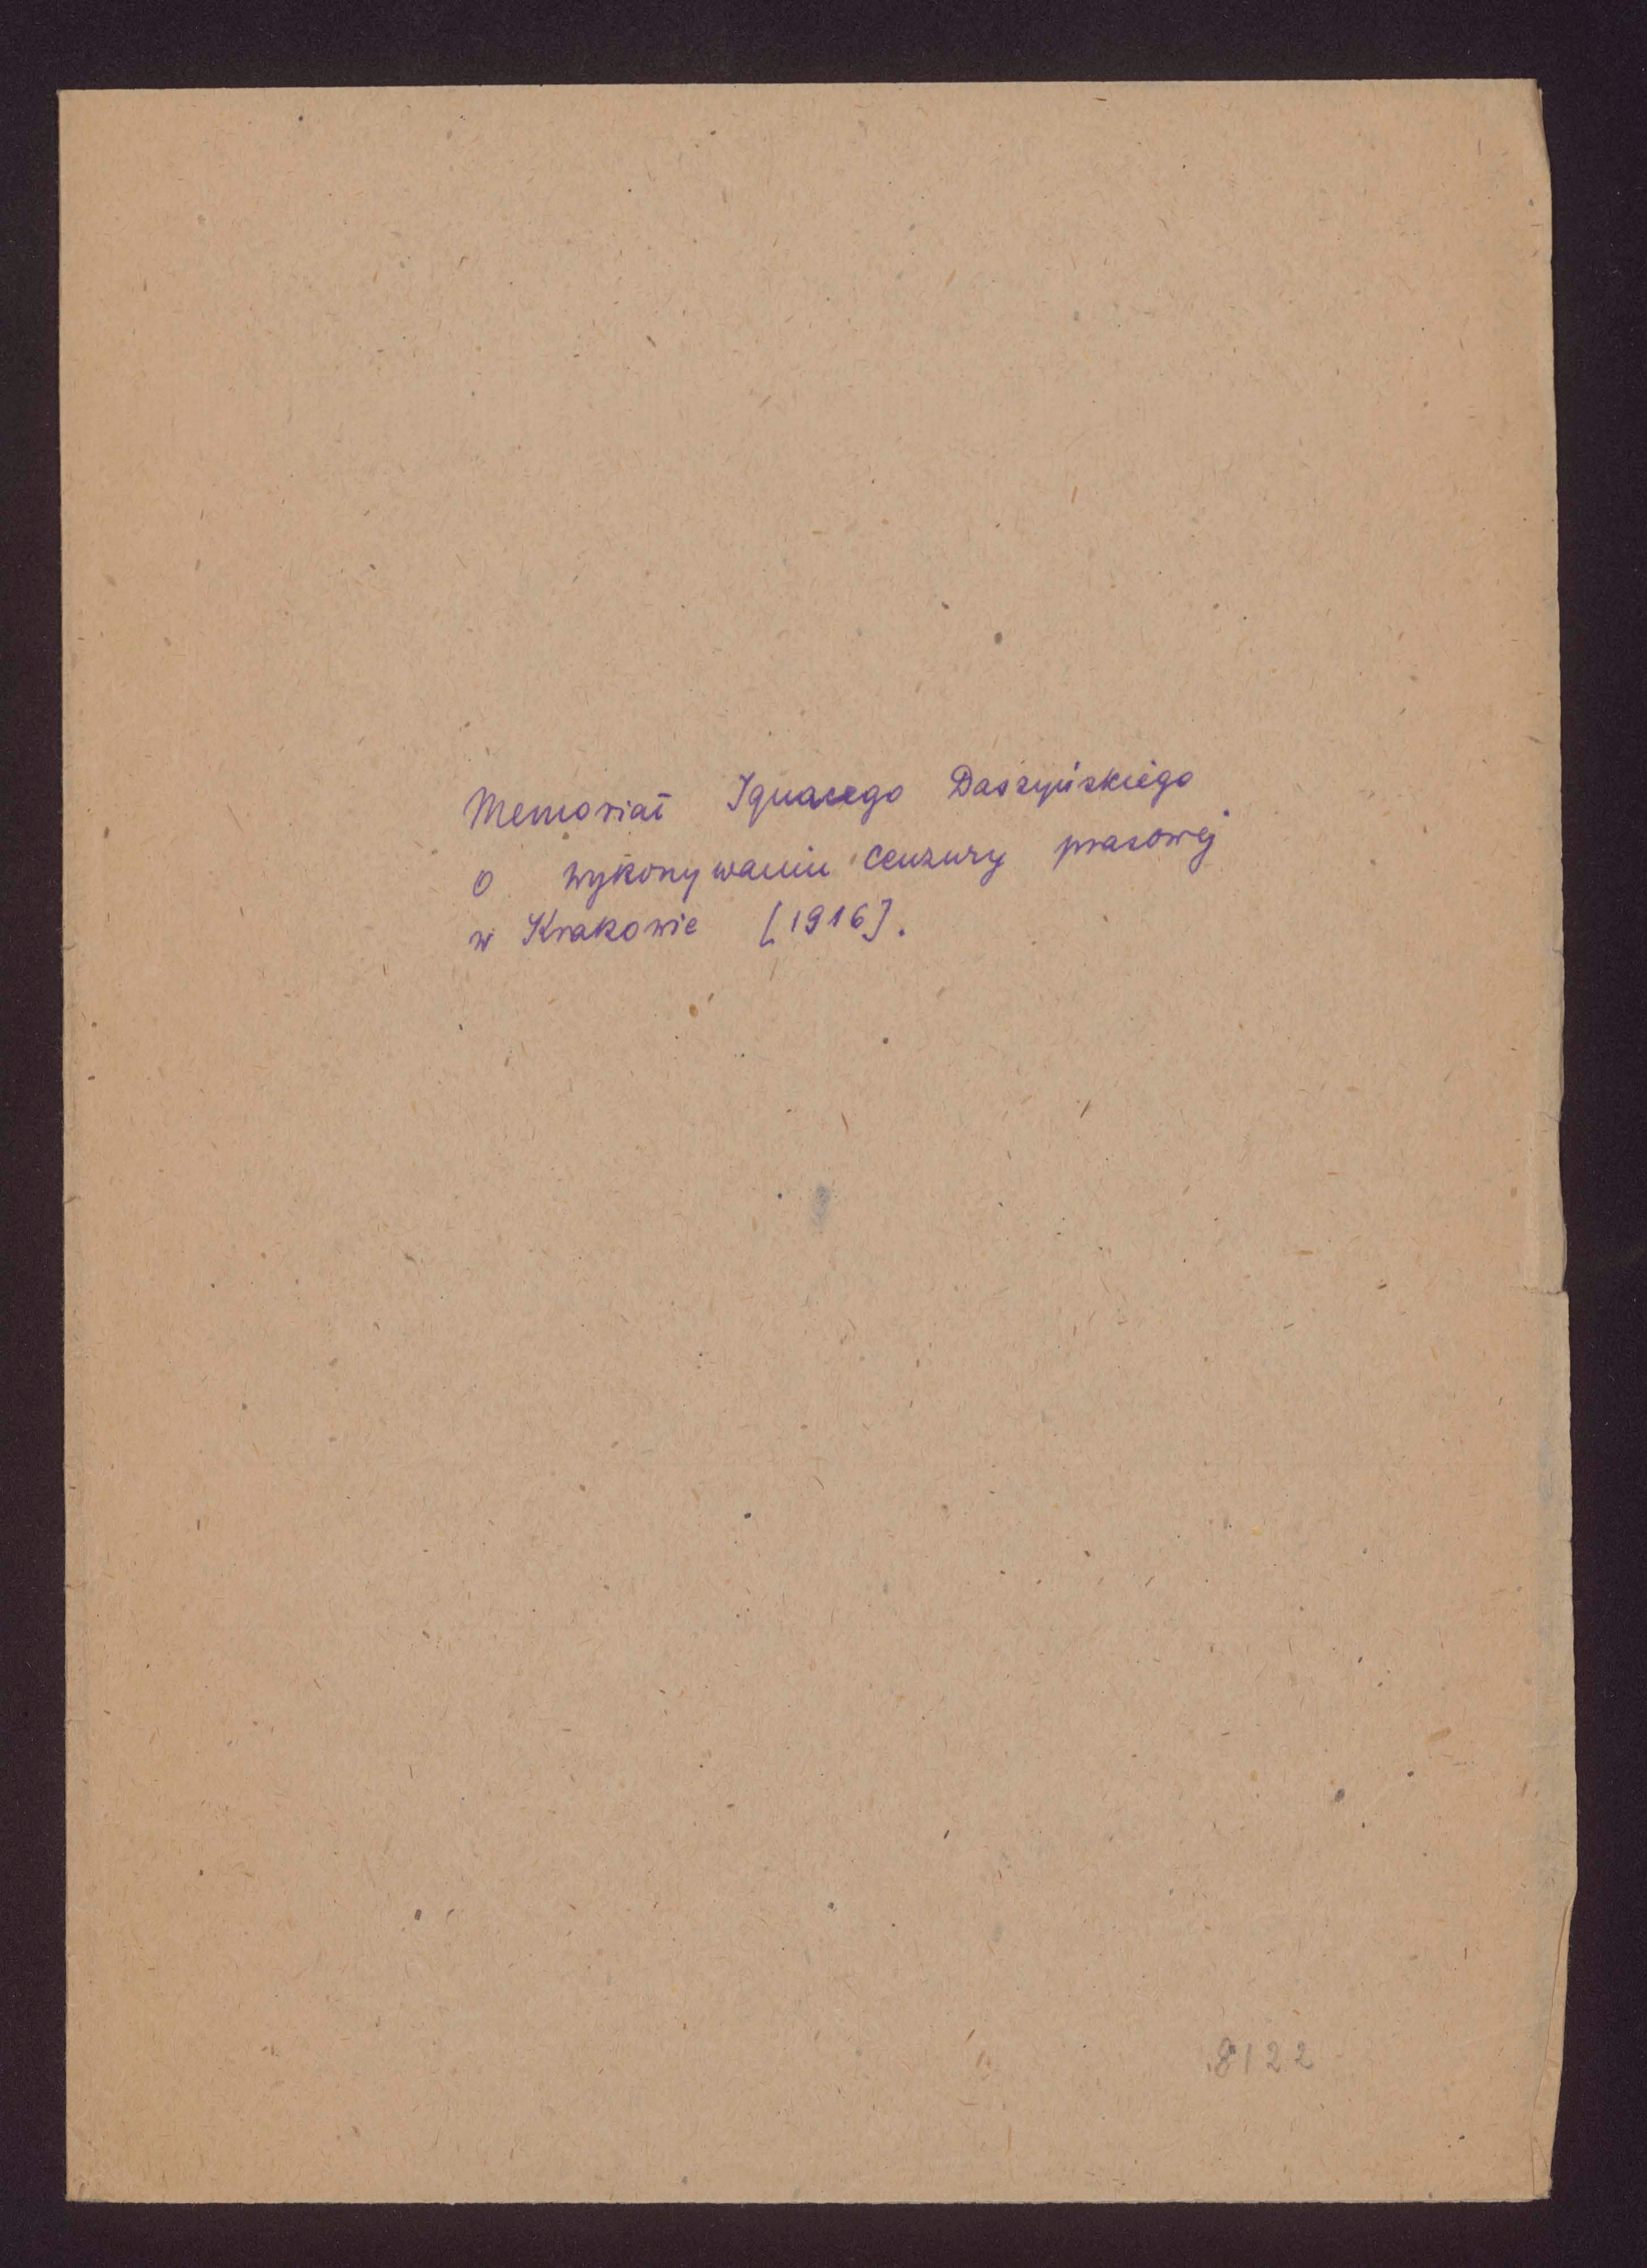 Memoriał Ignacego Daszyńskiego
o wykonywaniu cenzury prasowej
w Krakowie [1916].
8122